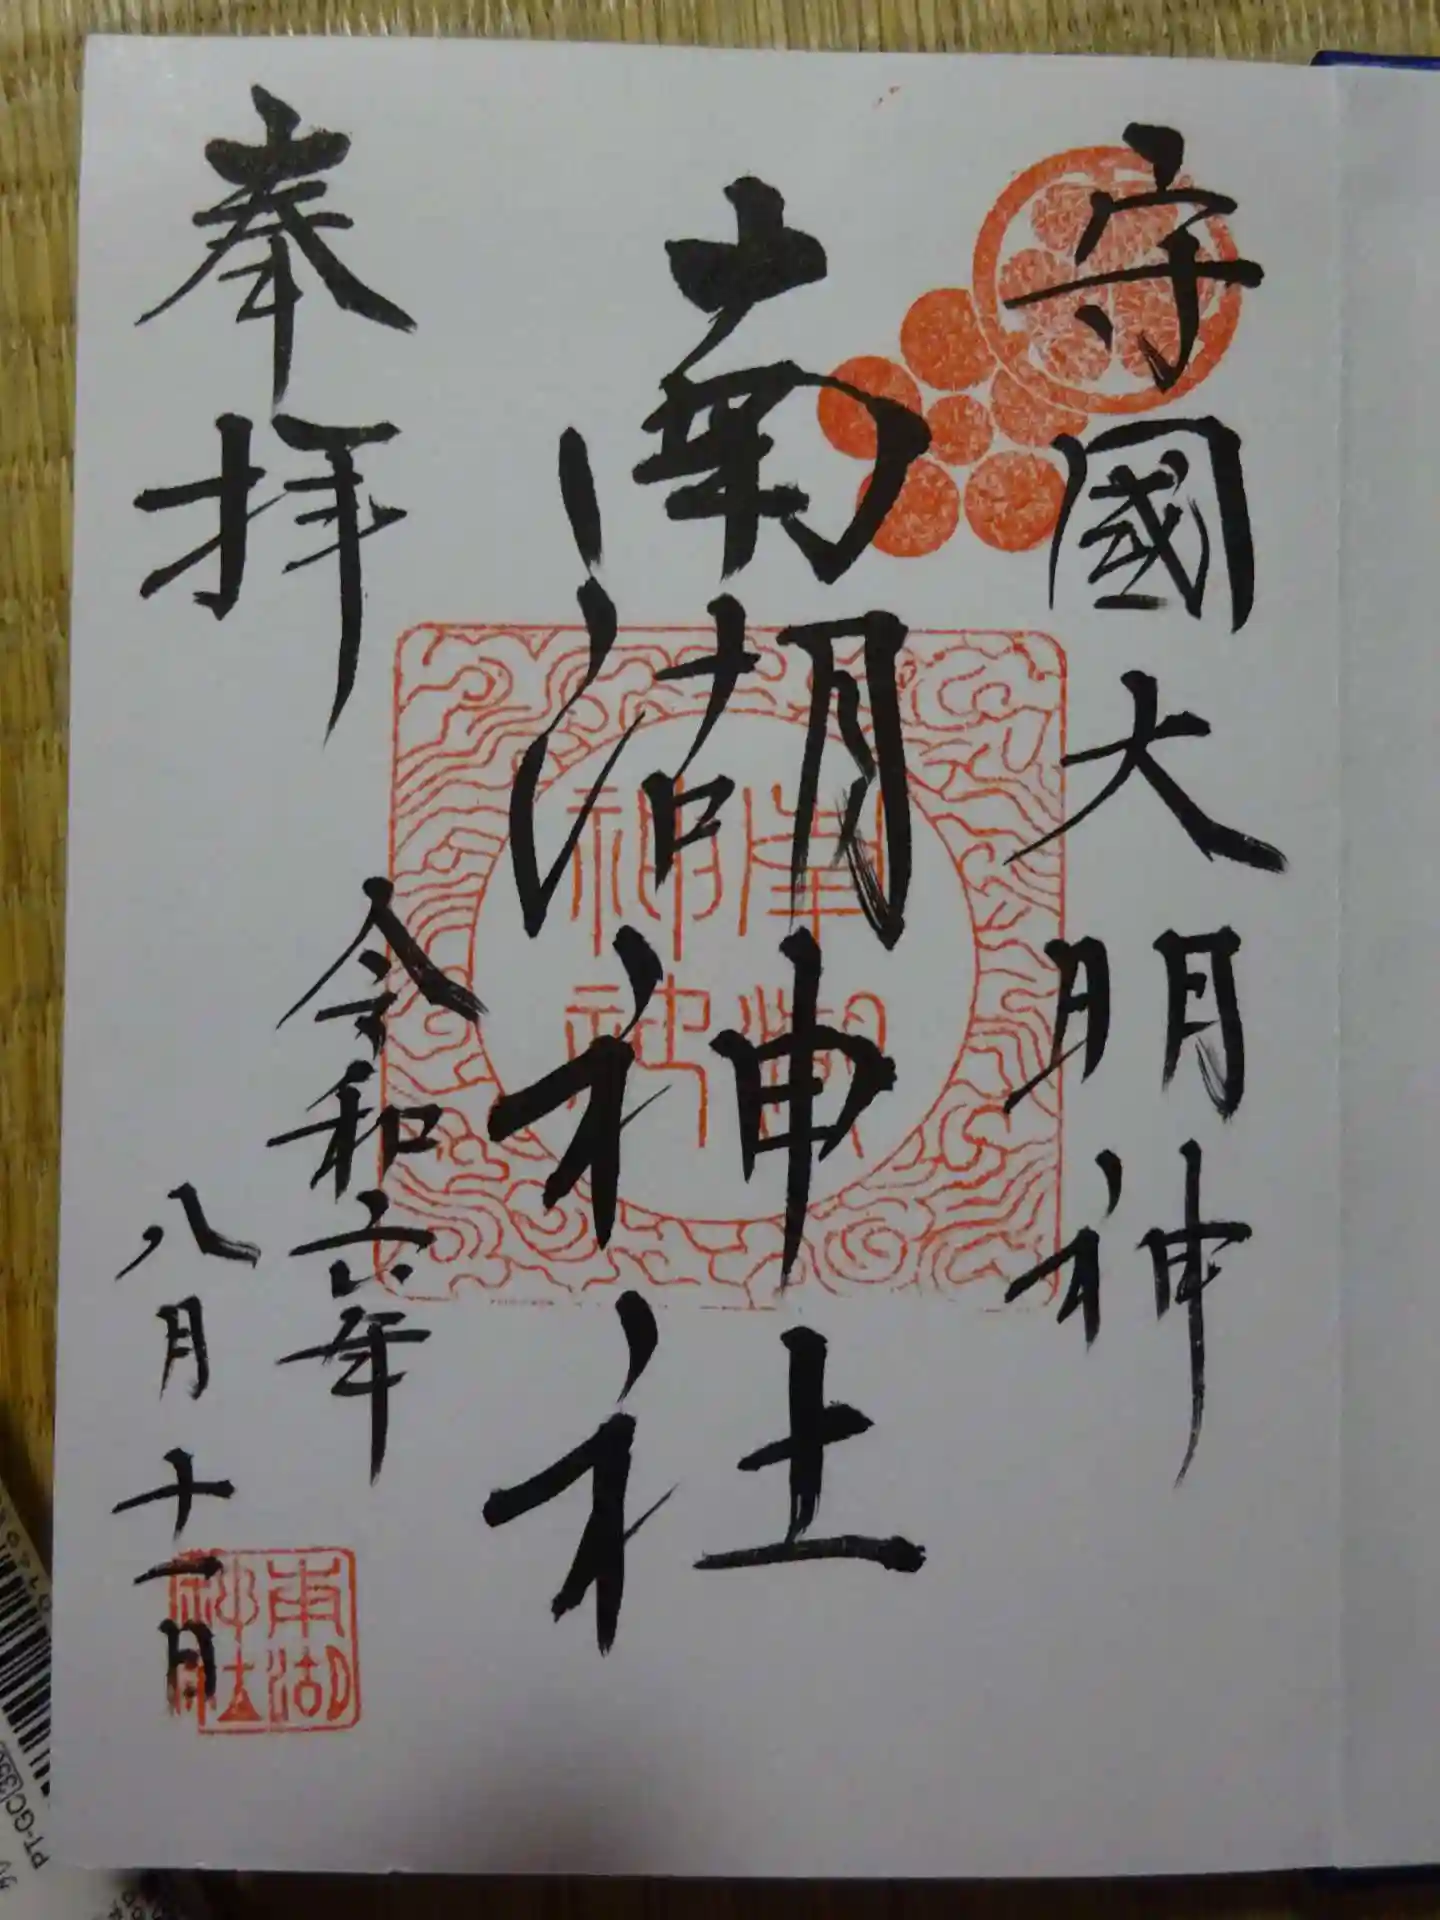 守國大明神
南湖神社
奉拝
令和六年
八月十一日
南湖
神社
南湖
神社
PT-GC